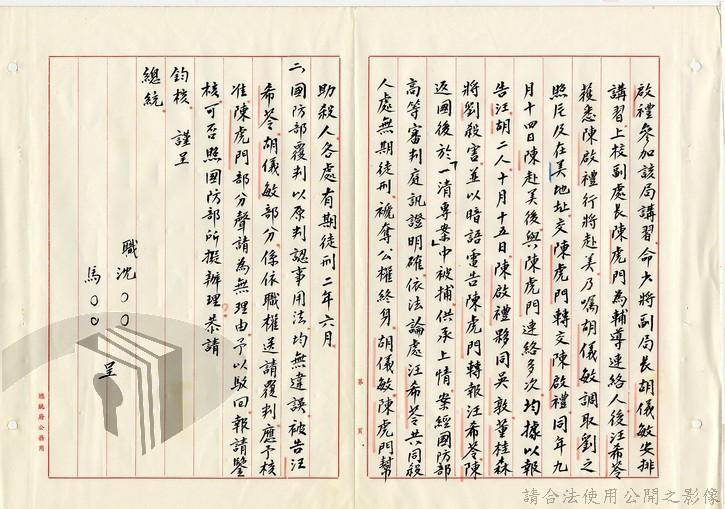 啟禮參加該局講習命少將副局長胡儀敏安排
講習上校副處長陳虎門為輔導連絡人後汪希苓
獲悉陳啟禮行將赴美乃囑胡儀敏調取劉之
照片及在美地址交陳虎門轉交陳啟禮同年九
月十四日陳赴美後與陳虎門連絡多次均據以報
告汪胡二人十月十五日陳啟禮夥同吳敦董桂森
將劉殺害並以暗語電告陳虎門轉報汪希苓陳
返國後於「一清專案」中被捕供承上情案經國防部
高等審判庭訊證明確依法論處汪希苓共同殺
人處無期徒刑褫奪公權終身胡儀敏陳虎門幫
助殺人各處有期徒刑二年六月
二、國防部覆判以原判認事用法均無違誤被告汪
希苓、胡儀敏部分係依職權送請覆判應予核
准陳虎門部分聲請為無理由予以駁回報請鑒
核可否照國防部所擬辦理恭請
鈞核 謹呈
總統
職沈○○
馬○○ 呈
總統府公務用
第 頁
請合法使用公開之影像